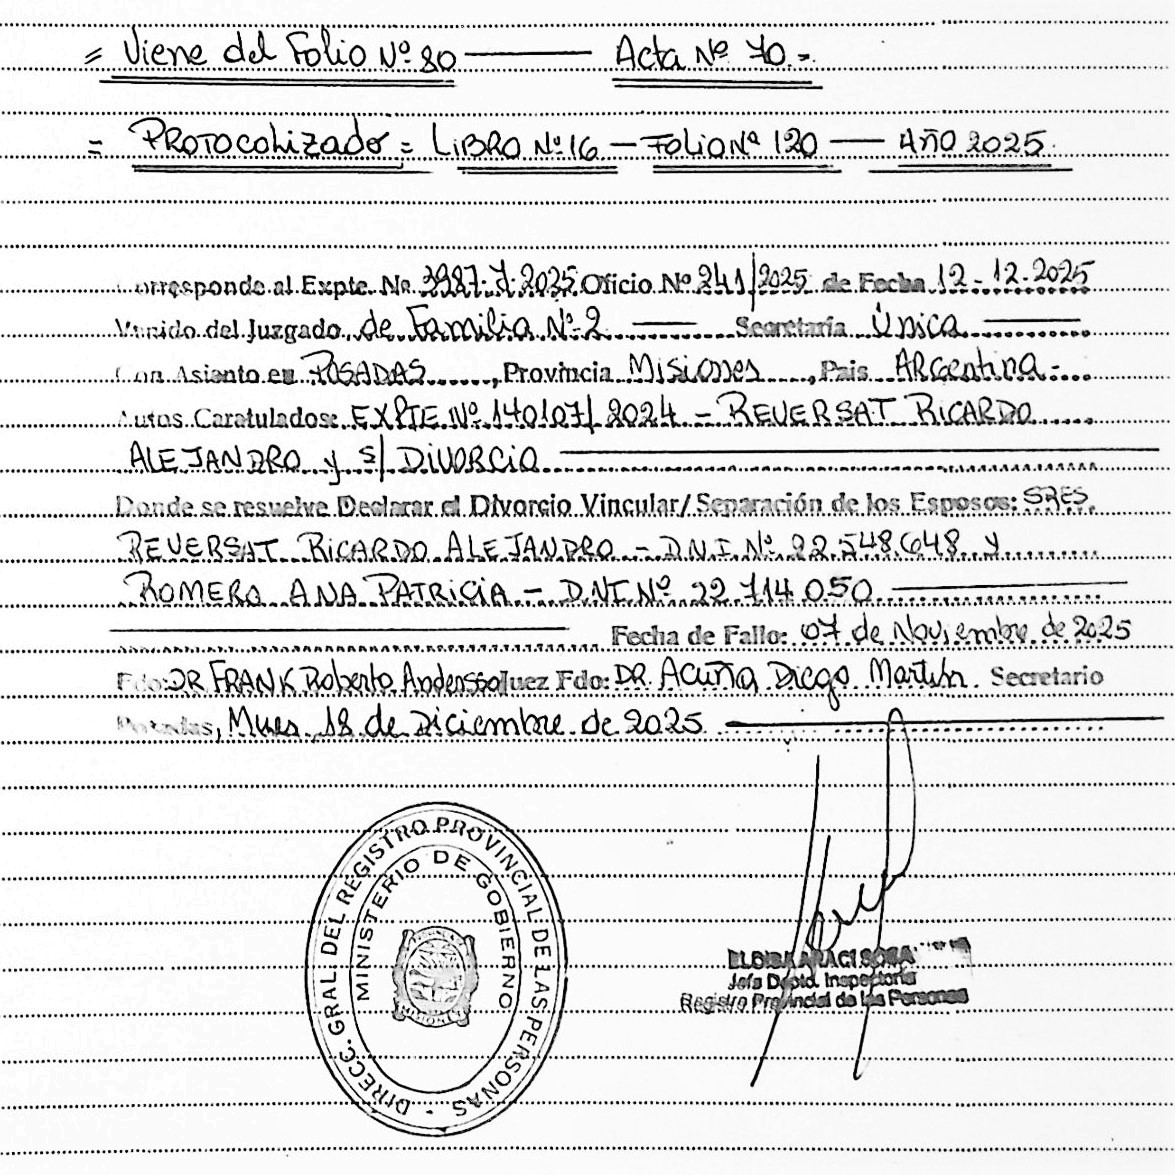 = Viene del Folio Nº 80 —— Acta Nº 70.=
= Protocolizado = Libro Nº 16 — Folio Nº 120 — Año 2025.
Corresponde al Expte. No 3987-J-2025 Oficio Nº 241/2025 de Fecha 12-12-2025
Venido del Juzgado de Familia Nº 2 —— Secretaría Única ——
Con Asiento en POSADAS, Provincia Misiones, Pais ARGentina.-
Autos Caratulados: EXPTE Nº 140107/2024 - REVERSAT RICARDO
ALEJANDRO y s/ DIVORCIO ——
Donde se resuelve Declarar el Divorcio Vincular/ Separación de los Esposos: SRES.
REVERSAT RICARDO ALEJANDRO - D.N.I. Nº 22.548.648 y
ROMERO ANA PATRICIA - DNI Nº 22.714.050 ——
—— Fecha de Fallo: 07 de Noviembre de 2025
Fdo: DR FRANK Roberto Anderss Juez Fdo: DR. Acuña Diego Martín. Secretario
Posadas, Mnes, 18 de Diciembre de 2025 ——
DIRECC. GRAL. DEL REGISTRO PROVINCIAL DE LAS PERSONAS -
MINISTERIO DE GOBIERNO
MISIONES
SOSA
Jefa Dpto. Inspectoría
Registro Provincial de las Personas